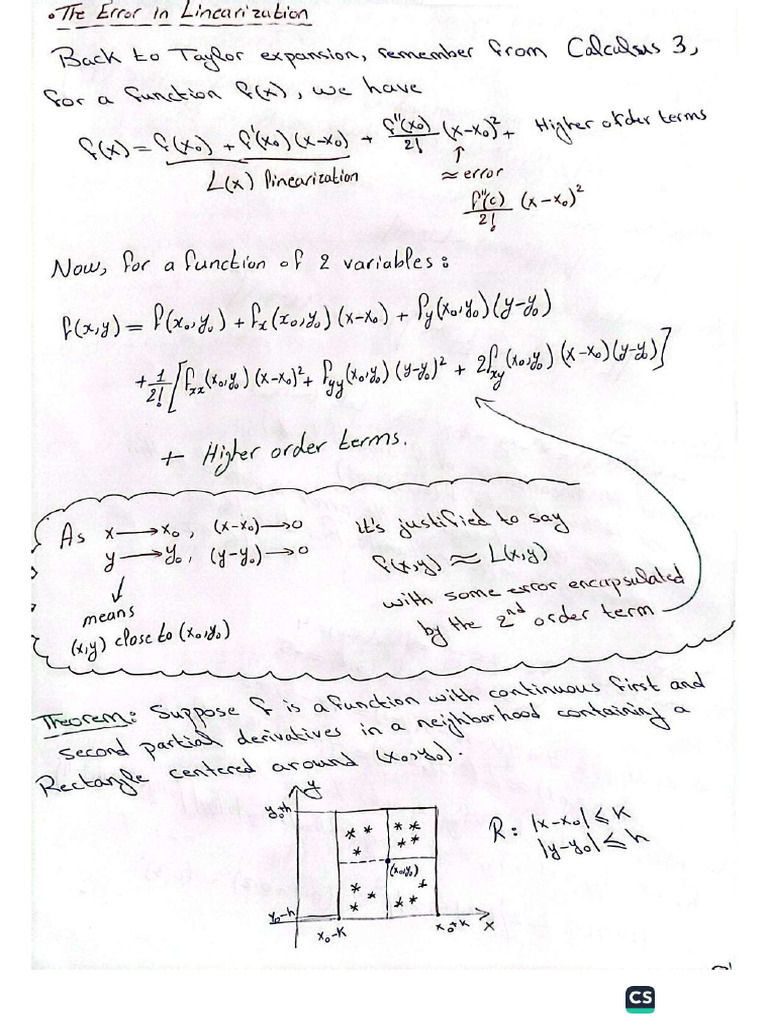 • The Error in Linearization
Back to Taylor expansion, remember from Calculus 3,
for a function f(x), we have
f(x) = f(x₀) + f'(x₀)(x-x₀) + f''(x₀)/2! (x-x₀)² + Higher order terms
L(x) linearization
↑
≈ error
f''(c)/2! (x-x₀)²
Now, for a function of 2 variables:
f(x,y) = f(x₀,y₀) + fₓ(x₀,y₀)(x-x₀) + f_y(x₀,y₀)(y-y₀)
+ 1/2! [f_xx(x₀,y₀)(x-x₀)² + f_yy(x₀,y₀)(y-y₀)² + 2f_xy(x₀,y₀)(x-x₀)(y-y₀)]
+ Higher order terms.
As x → x₀, (x-x₀) → 0
y → y₀, (y-y₀) → 0
↓
means
(x,y) close to (x₀,y₀)
it's justified to say
f(x,y) ≈ L(x,y)
with some error encapsulated
by the 2nd order term
Theorem: Suppose f is a function with continuous first and
second partial derivatives in a neighborhood containing a
Rectangle centered around (x₀,y₀).
y
y₀+h
(x₀,y₀)
y₀-h
x₀-K
x₀+K
x
R: |x-x₀| ≤ K
|y-y₀| ≤ h
CS